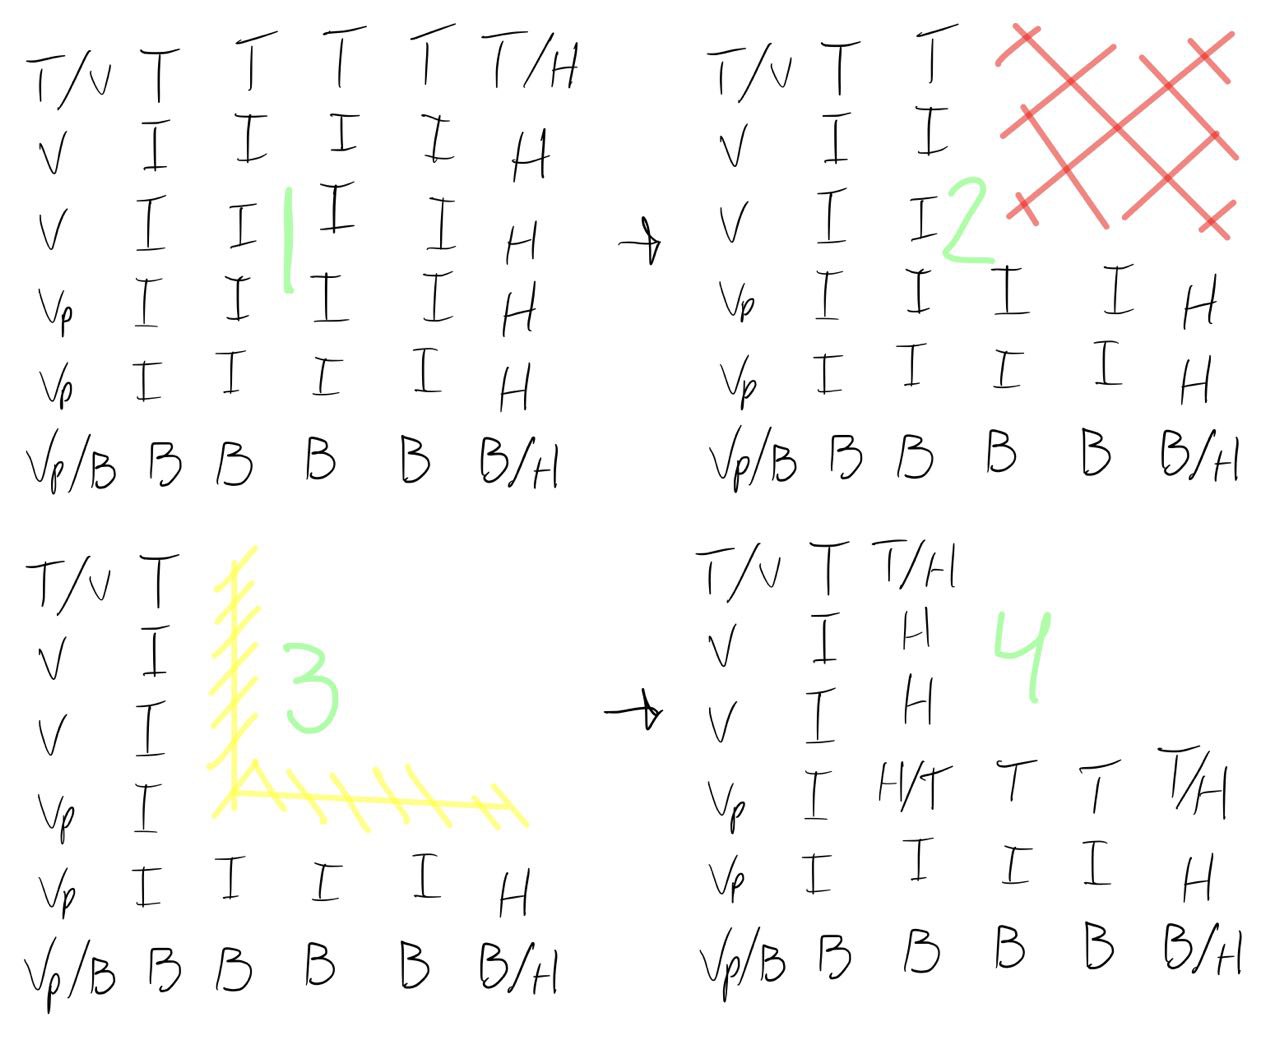 T/V T T T T T/H
V I I I I H
V I I I I H
Vp I I I I H
Vp I I I I H
Vp/B B B B B B/H
1
→
T/V T T
V I I
V I I
Vp I I I I H
Vp I I I I H
Vp/B B B B B B/H
2
T/V T
V I
V I
Vp I
Vp I I I I H
Vp/B B B B B B/H
3
→
T/V T T/H
V I H
V I H
Vp I H/T T T T/H
Vp I I I I H
Vp/B B B B B B/H
4